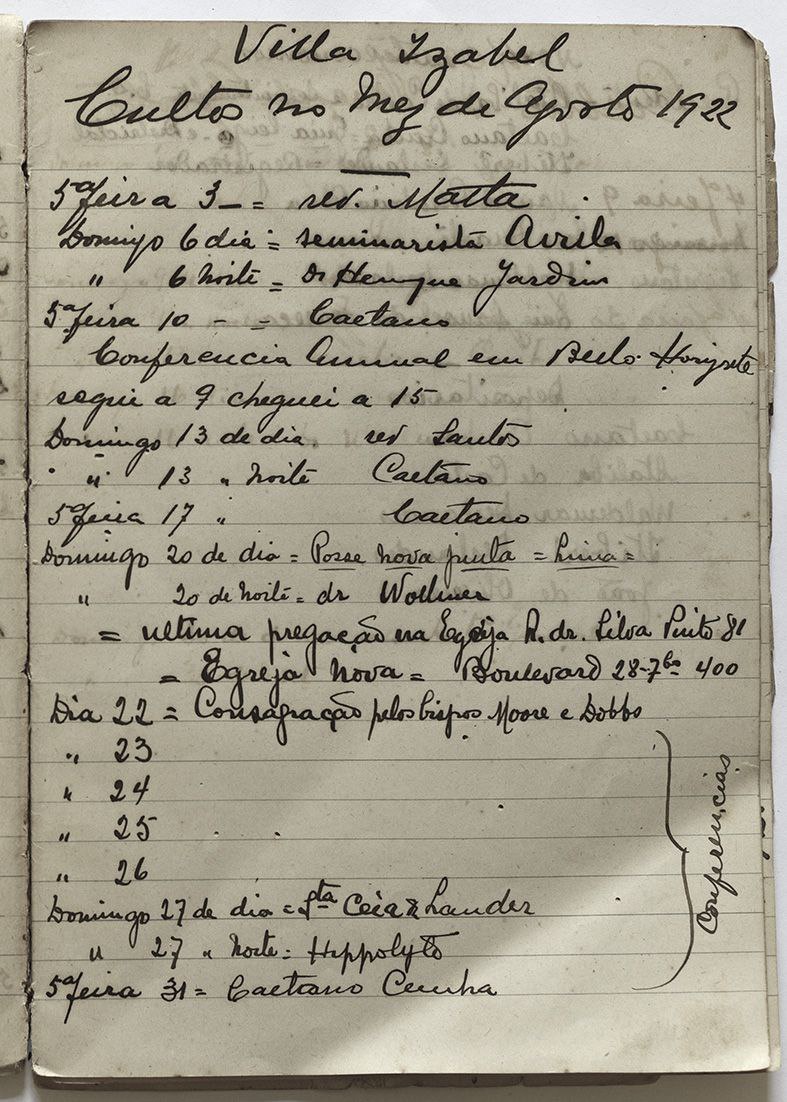 Villa Izabel
Cultos no Mez de Agosto 1922
5ª feira 3 - = rev. Matta
Domingo 6 dia = seminarista Avrila
" 6 noite = Dr Henrique Jardim
5ª feira 10 - = Caetano
Conferencia Annual em Bello-Horizonte
segui a 9 cheguei a 15
Domingo 13 de dia. rev Santos
" 13 " noite Caetano
5ª feira 17 " Caetano
Domingo 20 de dia = Posse nova junta = Lima =
" 20 de noite = dr Wollmer
= ultima pregação na Egreja R. dr. Silva Pinto 81
= Egreja nova = Boulevard 28-7bro 400
Dia 22 = Consagração pelos bispos Moore e Dobbs
" 23
" 24
" 25
" 26
Conferencias
Domingo 27 de dia = Sta Ceia Lander
" 27 " noite = Hippolyto
5ª feira 31 = Caetano Cunha